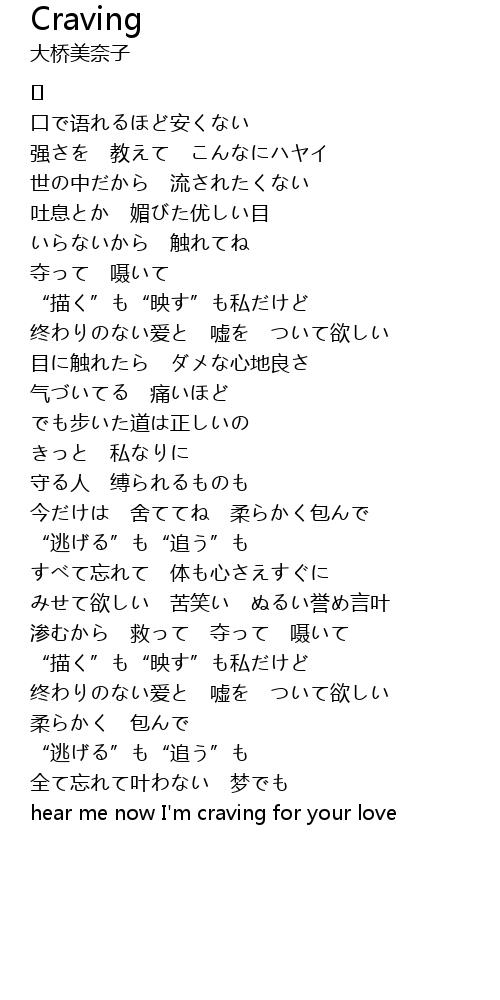 Craving
大桥美奈子
[]
口で语れるほど安くない
强さを　教えて　こんなにハヤイ
世の中だから　流されたくない
吐息とか　媚びた优しい目
いらないから　触れてね
夺って　嗫いて
“描く”も“映す”も私だけど
终わりのない爱と　嘘を　ついて欲しい
目に触れたら　ダメな心地良さ
气づいてる　痛いほど
でも步いた道は正しいの
きっと　私なりに
守る人　缚られるものも
今だけは　舍ててね　柔らかく包んで
“逃げる”も“追う”も
すべて忘れて　体も心さえすぐに
みせて欲しい　苦笑い　ぬるい誉め言叶
渗むから　救って　夺って　嗫いて
“描く”も“映す”も私だけど
终わりのない爱と　嘘を　ついて欲しい
柔らかく　包んで
“逃げる”も“追う”も
全て忘れて叶わない　梦でも
hear me now I'm craving for your love